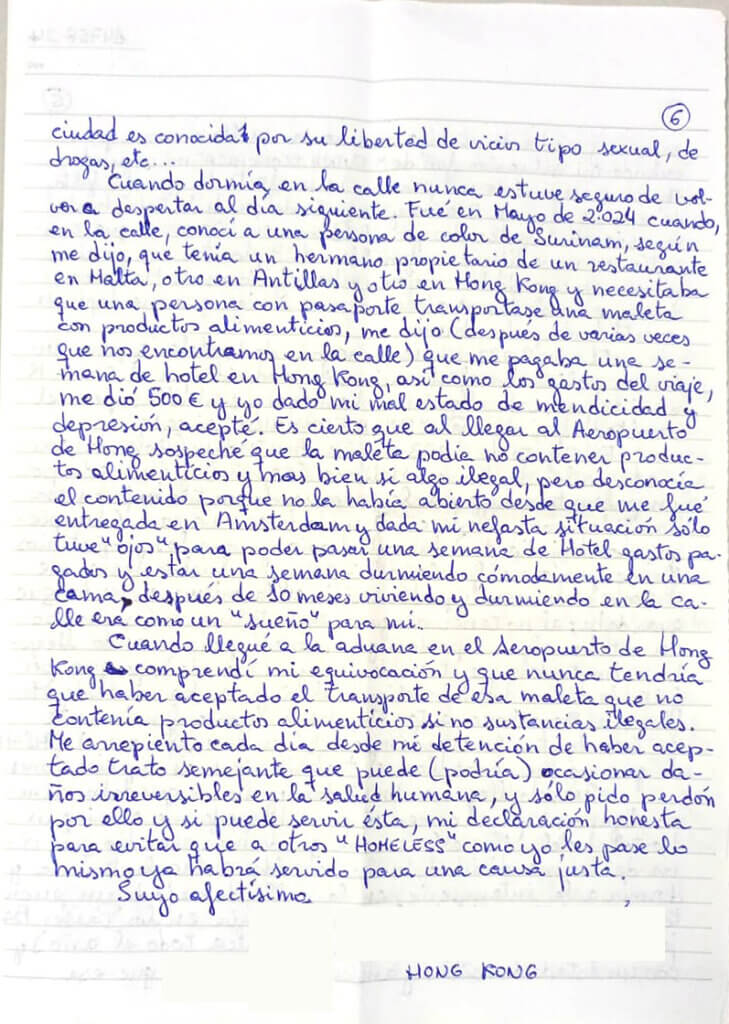 6
ciudad es conocida por su libertad de vicios tipo sexual, de
drogas, etc...
Cuando dormía en la calle nunca estuve seguro de vol-
ver a despertar al día siguiente. Fué en Mayo de 2.024 cuando,
en la calle, conocí a una persona de color de Surinam, según
me dijo, que tenía un hermano propietario de un restaurante
en Malta, otro en Antillas y otro en Hong Kong y necesitaba
que una persona con pasaporte transportase una maleta
con productos alimenticios, me dijo (después de varias veces
que nos encontramos en la calle) que me pagaba une se-
mana de hotel en Hong Kong, así como los gastos del viaje,
me dió 500 € y yo dado mi mal estado de mendicidad y
depresión, acepté. Es cierto que al llegar al Aeropuerto
de Hong sospeché que la maleta podia no contener produc-
tos alimenticios y mas bien si algo ilegal, pero desconocía
el contenido porque no la había abierto desde que me fué
entregada en Amsterdam y dada mi nefasta situación sólo
tuve "ojos" para poder pasar una semana de Hotel gastos pa-
gados y estar una semana durmiendo cómodamente en una
cama, después de 10 meses viviendo y durmiendo en la ca-
lle era como un "sueño" para mí.
Cuando llegué a la aduana en el Aeropuerto de Hong
Kong comprendí mi equivocación y que nunca tendría
que haber aceptado el transporte de esa maleta que no
contenía productos alimenticios si no sustancias ilegales.
Me arrepiento cada día desde mi detención de haber acep-
tado trato semejante que puede (podría) ocasionar da-
ños irreversibles en la salud humana, y sólo pido perdón
por ello y si puede servir ésta, mi declaración honesta
para evitar que a otros "HOMELESS" como yo les pase lo
mismo ya habrá servido para una causa justa.
Suyo afectísimo ,
HONG KONG